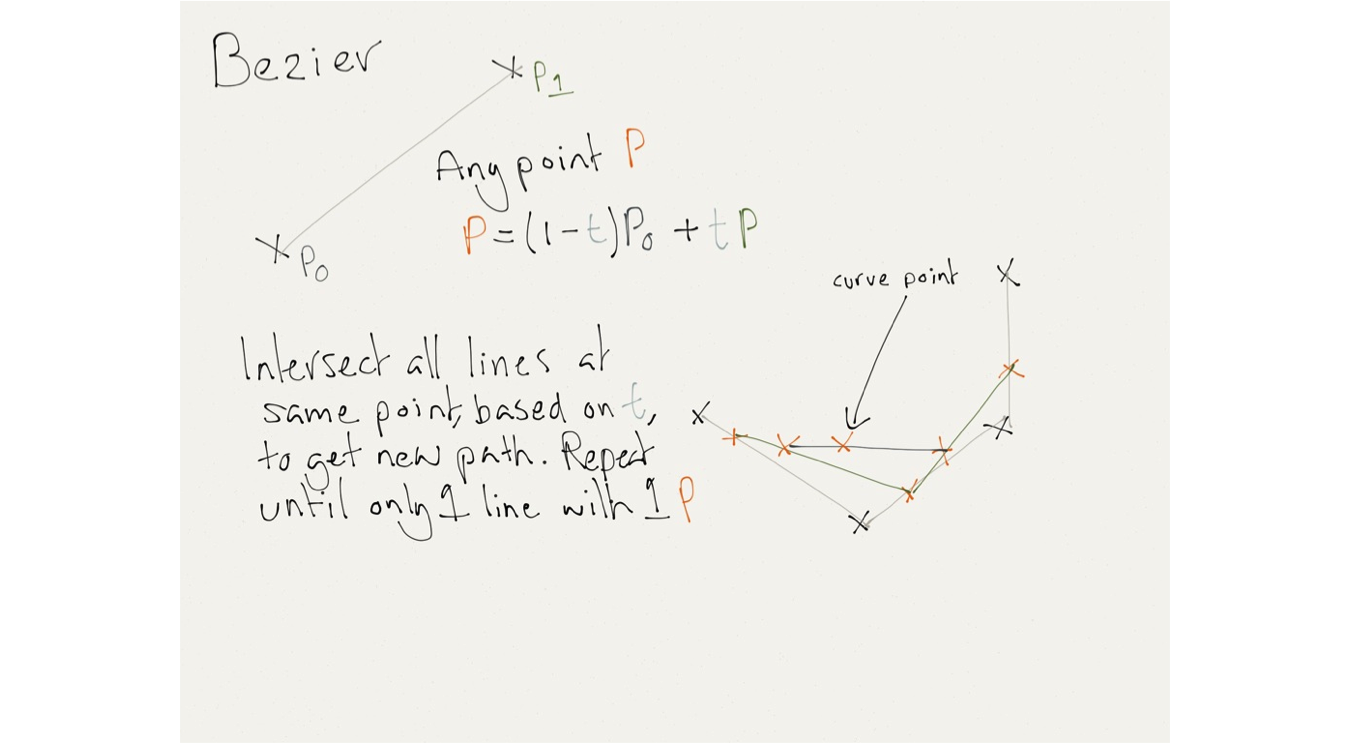 Bezier
P1
Any point P
P=(1-t)P0 + tP
P0
curve point
Intersect all lines at
same point, based on t,
to get new path. Repeat
until only 1 line with 1 P